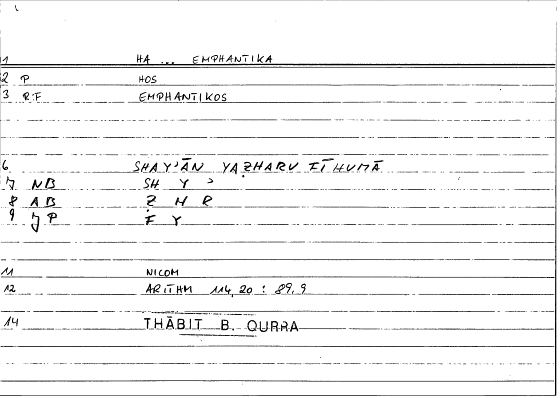 1 HA ... EMPHANTIKA
2 P HOS
3 R.F EMPHANTIKOS
6 SHAY'ĀN YAẒHARU FĪHUMĀ
7 NB SH Y '
8 AB Ẓ H R
9 JP F Y
11 NICOM
12 ARITHM 114,20 : 89.9
14 THĀBIT B. QURRA